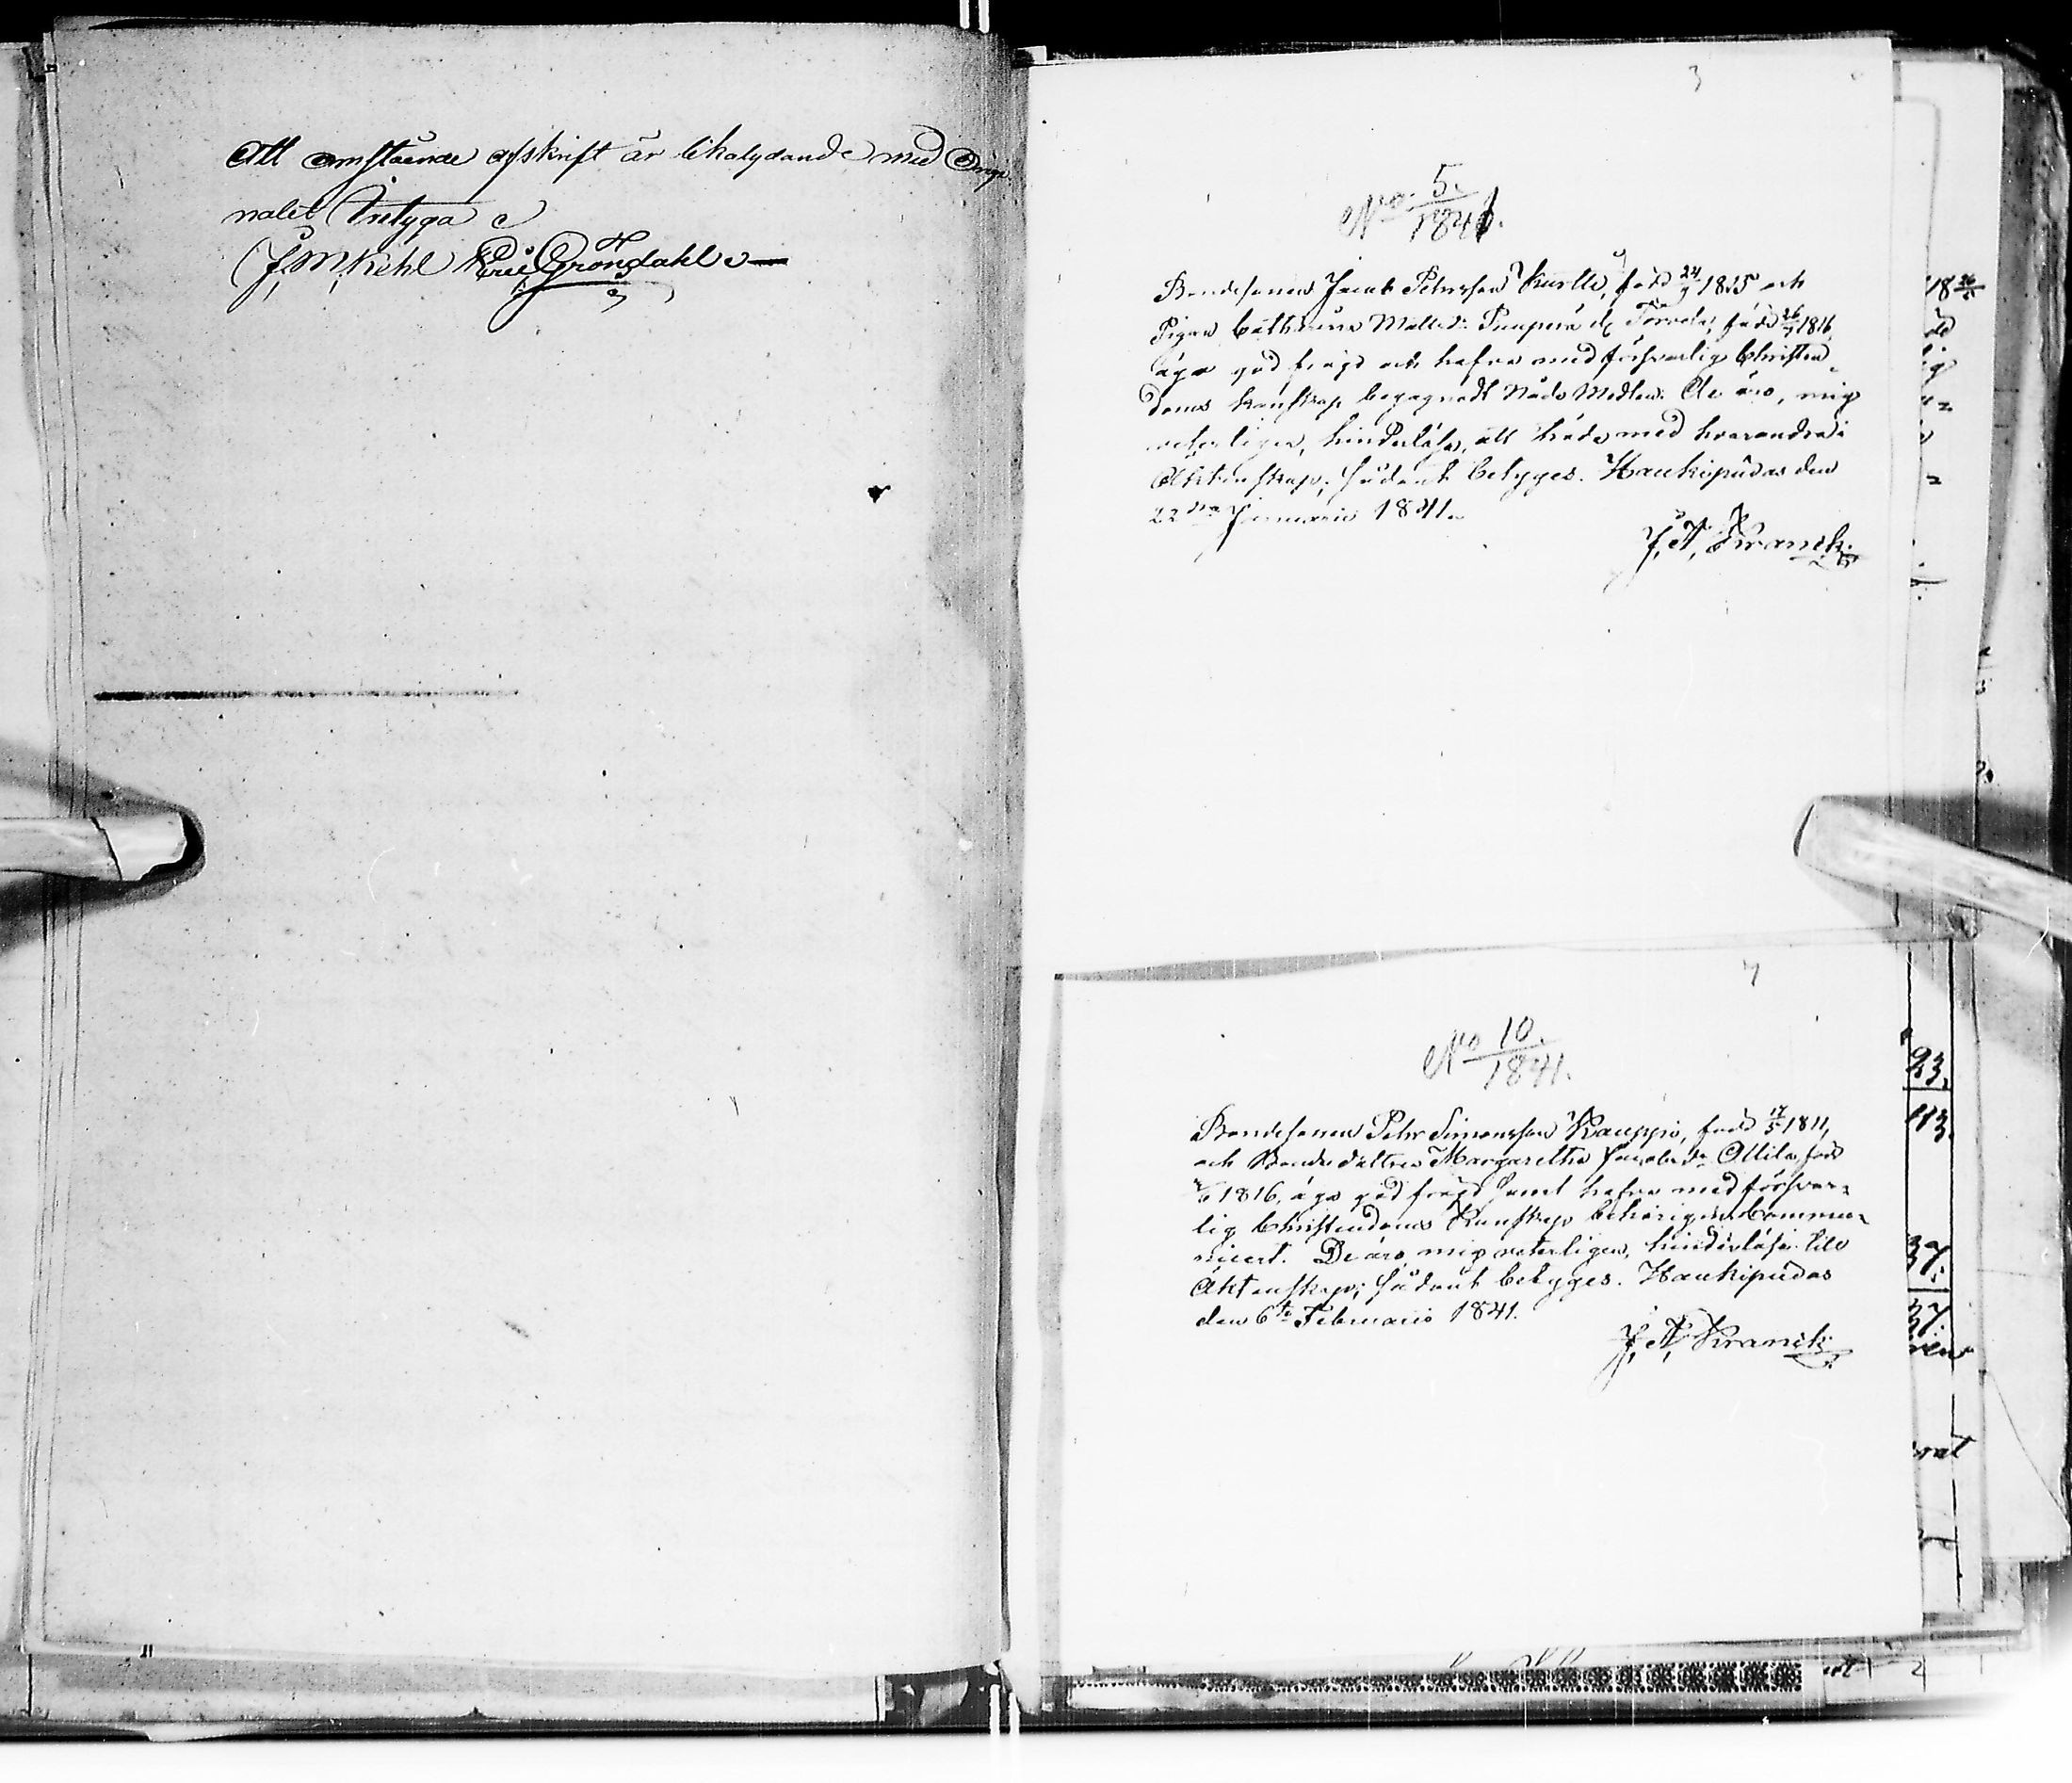 Att omstående afskrift är likalydande med Origi
nalet Intyga
J, M, Kehl Eric Gröndahl
3
No 5.
1841.
Bondesonen Jacob Pehrsson Kurtti, född 24/7 1815 och
Pigan Catharina Mattsd: född 26/7 1816,
äga god frägd och hafva med försvarlig Christen
doms kunskap begagnadt Nåde Medlen. De äro, mig
veterligen, hinderlösa, att träda med hvarandra i
Äktenskap; sådant betyges. Haukipudas den
22dra Januarii 1841.
J, A, Kranck.
4
No 10.
1841.
Bondesonen Pehr Simonsson Kauppi, född 17/5 1811,
och Bondedottren Margaretha Jacobsdr Ollila, född
1816, äga god frägd samt hafva med försvar=
lig Christendoms Kunskap behörigen Commu=
nicert. De äro, mig veterligen, hinderlösa till
Äktenskap; sådant betyges. Haukipudas
den 6te Februarii 1841.
J, A, Kranck.
18 26/5
23.
113.
37.
37.